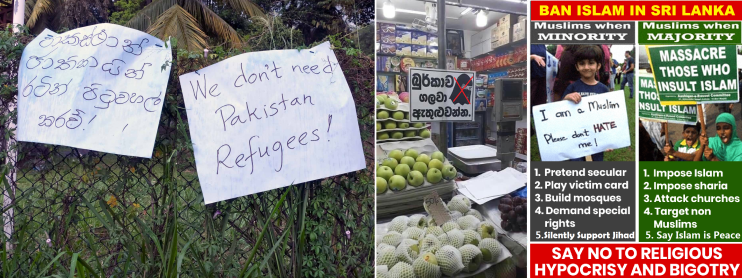 පාකිස්ථාන් -
ජාතිකයින්
රටින් පිටුවහල්
කරව්!
We don't need
Pakistan
Refugees!
බුර්කාව
ගලවා
ඇතුළුවන්න.
BAN ISLAM IN SRI LANKA
Muslims when
MINORITY
I am a Muslim
Please don't HATE
me!
1. Pretend secular
2. Play victim card
3. Build mosques
4. Demand special
rights
5. Silently Support Jihad
Muslims when
MAJORITY
MASSACRE
THOSE WHO
INSULT ISLAM
1. Impose Islam
2. Impose sharia
3. Attack churches
4. Target non
Muslims
5. Say Islam is Peace
SAY NO TO RELIGIOUS
HYPOCRISY AND BIGOTRY